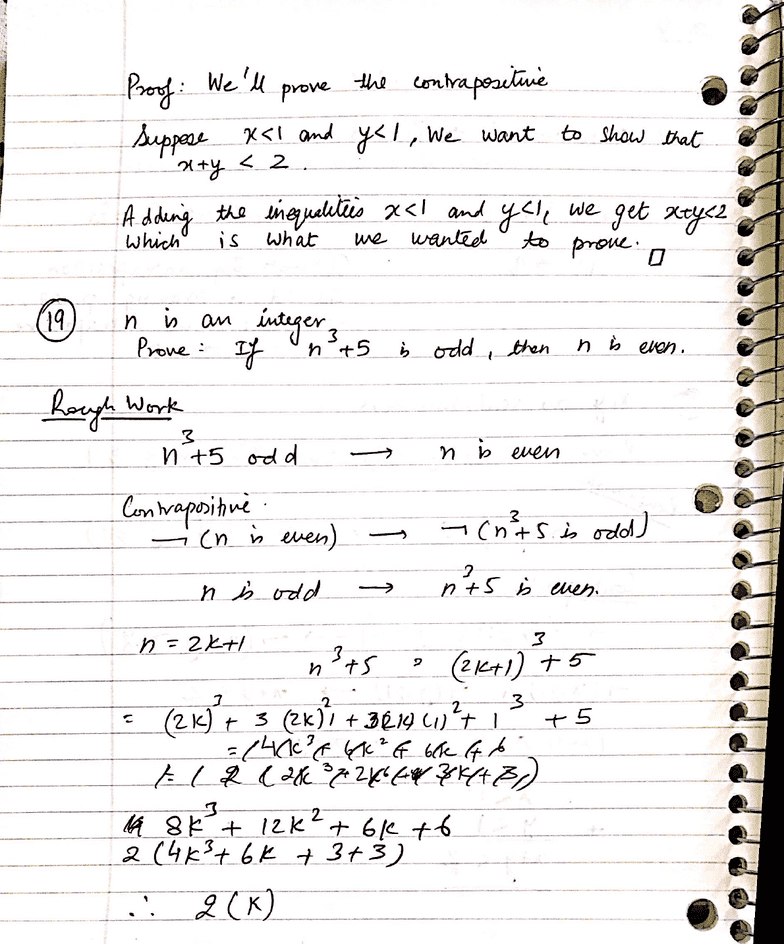 Proof: We'll prove the contrapositive
Suppose x<1 and y<1, We want to show that
x+y < 2.
Adding the inequalities x<1 and y<1, we get x+y<2
which is what we wanted to prove. □
19 n is an integer
Prove: If n³+5 is odd, then n is even.
Rough Work
n³+5 odd → n is even
Contrapositive.
¬(n is even) → ¬(n³+5 is odd)
n is odd → n³+5 is even.
n = 2k+1
n³+5 = (2k+1)³ + 5
= (2k)³ + 3(2k)²1 + 3(2k)(1)² + 1³ + 5
8k³ + 12k² + 6k + 6
2(4k³ + 6k + 3 + 3)
∴ 2(K)